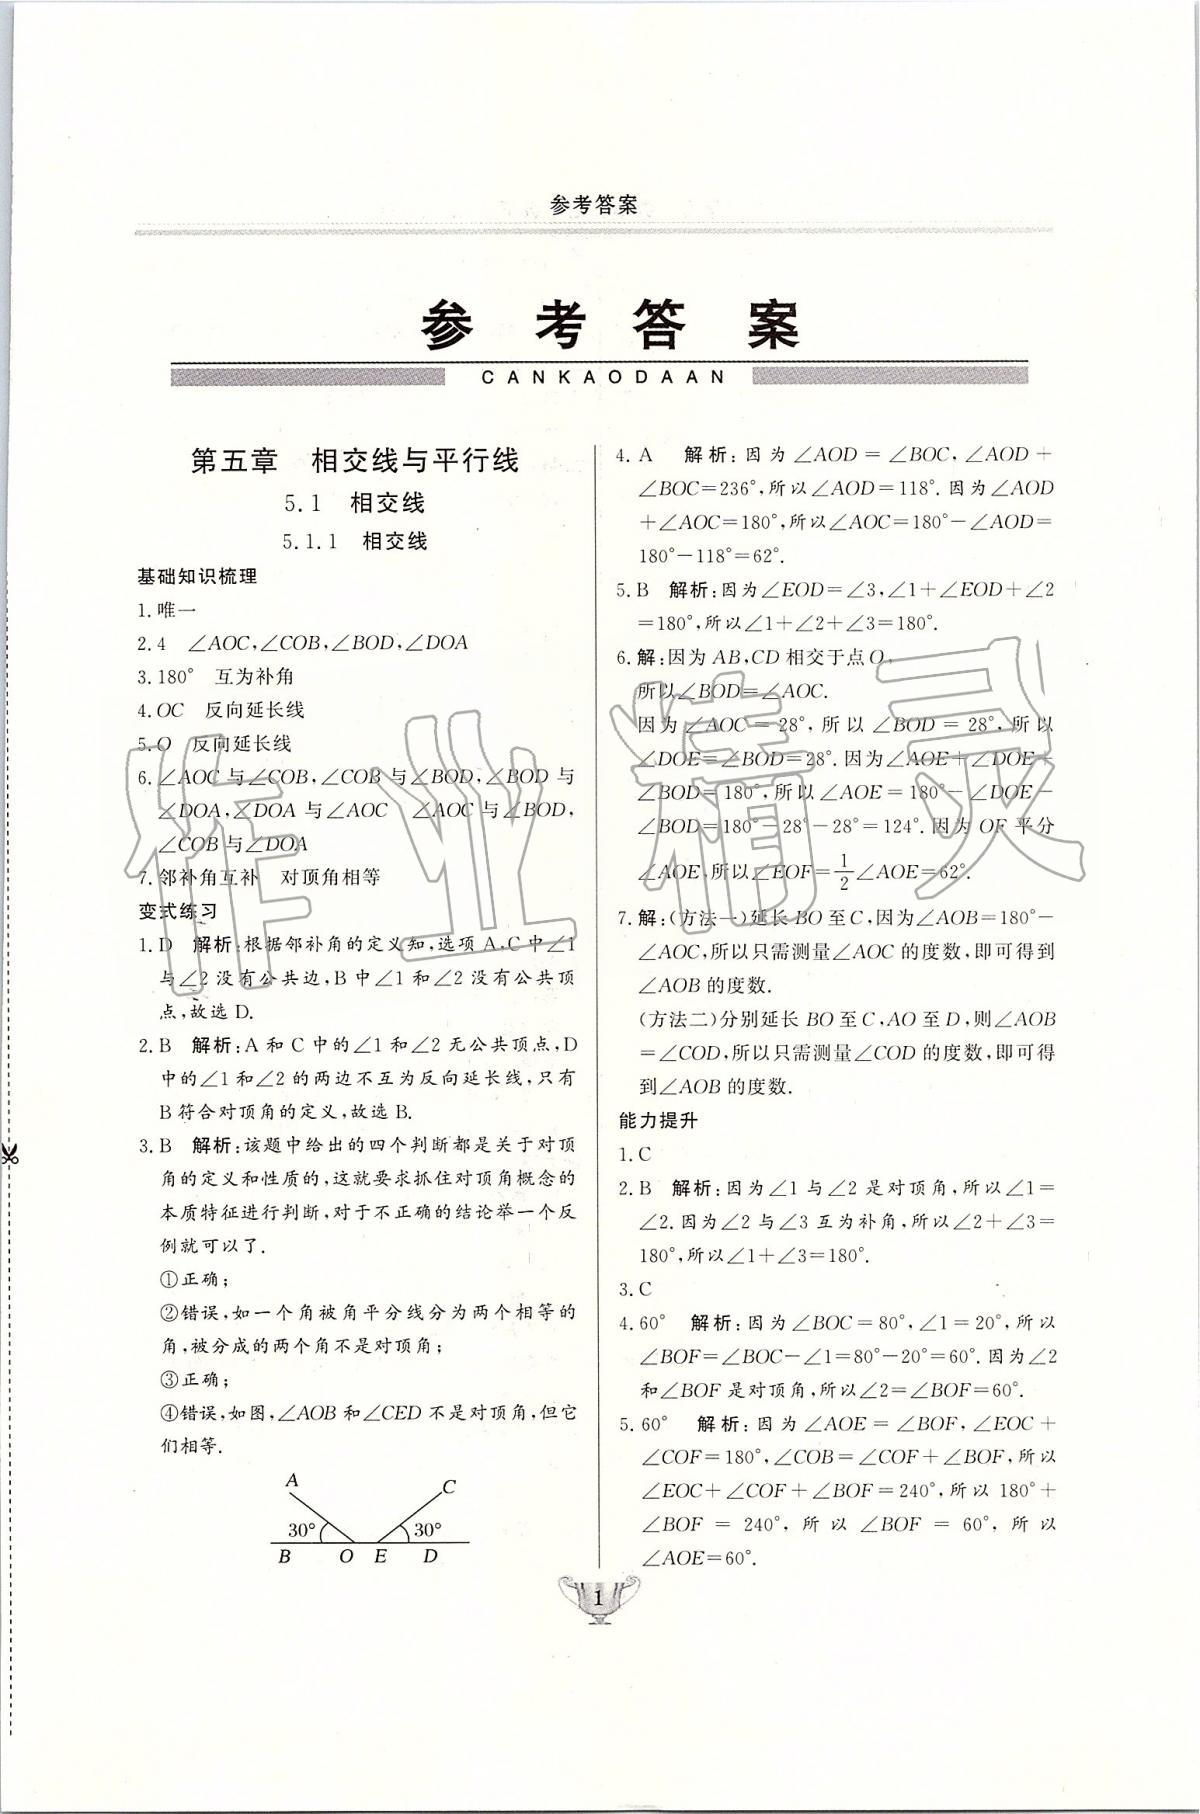 参考答案
参考答案
CANKAODAAN
第五章 相交线与平行线
5.1 相交线
5.1.1 相交线
基础知识梳理
1.唯一
2.4 ∠AOC,∠COB,∠BOD,∠DOA
3.180° 互为补角
4.OC 反向延长线
5.O 反向延长线
6.∠AOC与∠COB,∠COB与∠BOD,∠BOD与
∠DOA,∠DOA与∠AOC ∠AOC与∠BOD,
∠COB与∠DOA
7.邻补角互补 对顶角相等
变式练习
1.D 解析:根据邻补角的定义知,选项A,C中∠1
与∠2没有公共边,B中∠1和∠2没有公共顶
点,故选D.
2.B 解析:A和C中的∠1和∠2无公共顶点,D
中的∠1和∠2的两边不互为反向延长线,只有
B符合对顶角的定义,故选B.
3.B 解析:该题中给出的四个判断都是关于对顶
角的定义和性质的,这就要求抓住对顶角概念的
本质特征进行判断,对于不正确的结论举一个反
例就可以了.
①正确;
②错误,如一个角被角平分线分为两个相等的
角,被分成的两个角不是对顶角;
③正确;
④错误,如图,∠AOB和∠CED不是对顶角,但它
们相等.
A C
30° 30°
B O E D
4.A 解析:因为∠AOD=∠BOC,∠AOD+
∠BOC=236°,所以∠AOD=118°.因为∠AOD
+∠AOC=180°,所以∠AOC=180°-∠AOD=
180°-118°=62°.
5.B 解析:因为∠EOD=∠3,∠1+∠EOD+∠2
=180°,所以∠1+∠2+∠3=180°.
6.解:因为AB,CD相交于点O,
所以∠BOD=∠AOC.
因为∠AOC=28°,所以∠BOD=28°,所以
∠DOE=∠BOD=28°.因为∠AOE+∠DOE+
∠BOD=180°,所以∠AOE=180°-∠DOE-
∠BOD=180°-28°-28°=124°.因为OF平分
∠AOE,所以∠EOF=1/2∠AOE=62°.
7.解:(方法一)延长BO至C,因为∠AOB=180°-
∠AOC,所以只需测量∠AOC的度数,即可得到
∠AOB的度数.
(方法二)分别延长BO至C,AO至D,则∠AOB
=∠COD,所以只需测量∠COD的度数,即可得
到∠AOB的度数.
能力提升
1.C
2.B 解析:因为∠1与∠2是对顶角,所以∠1=
∠2.因为∠2与∠3互为补角,所以∠2+∠3=
180°,所以∠1+∠3=180°.
3.C
4.60° 解析:因为∠BOC=80°,∠1=20°,所以
∠BOF=∠BOC-∠1=80°-20°=60°.因为∠2
和∠BOF是对顶角,所以∠2=∠BOF=60°.
5.60° 解析:因为∠AOE=∠BOF,∠EOC+
∠COF=180°,∠COB=∠COF+∠BOF,所以
∠EOC+∠COF+∠BOF=240°,所以180°+
∠BOF=240°,所以∠BOF=60°,所以
∠AOE=60°.
1
作业精灵